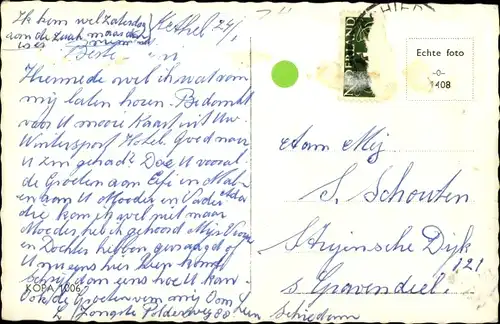 Ik ben wel zaterdag
aan de zaak maar dan
is es
Kethel 24/1
Beste
Hiermede wil ik wat van
mij laten horen. Bedankt
voor U mooie Kaart uit Uw
Wintersport Hotel. Goed naar
U zin gehad? Doe U vooral
de Groeten aan Elfi en
en aan U Moeder en Vader
die kom ik wel niet maar
Moeder heb ik gehoord Mijn Vrouw
en Dochter hebben gevraagd of
U nu eens hier komt
Schrijf dan eens hoe U kan
Ook de Groeten van mij Oom
L. Jongste Polderweg 80
Schiedam
KOPA 1006
NEDERLAND
SCHIED
Echte foto
-o-
1408
Aan Mej
S. Schouten
Strijensche Dijk
121
s Gravendeel.